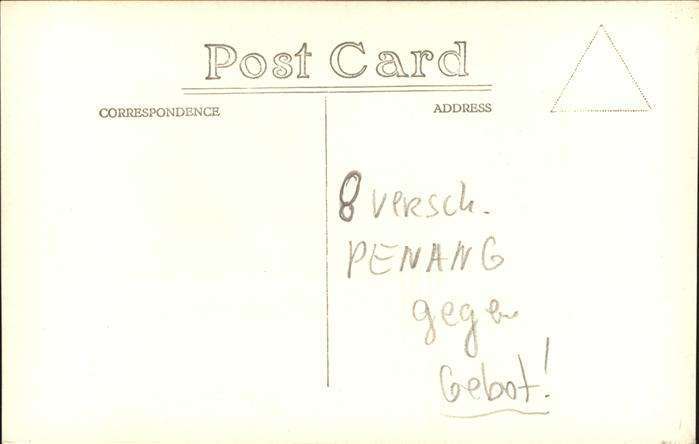 Post Card
CORRESPONDENCE
ADDRESS
8 versch.
PENANG
gegen
Gebot!